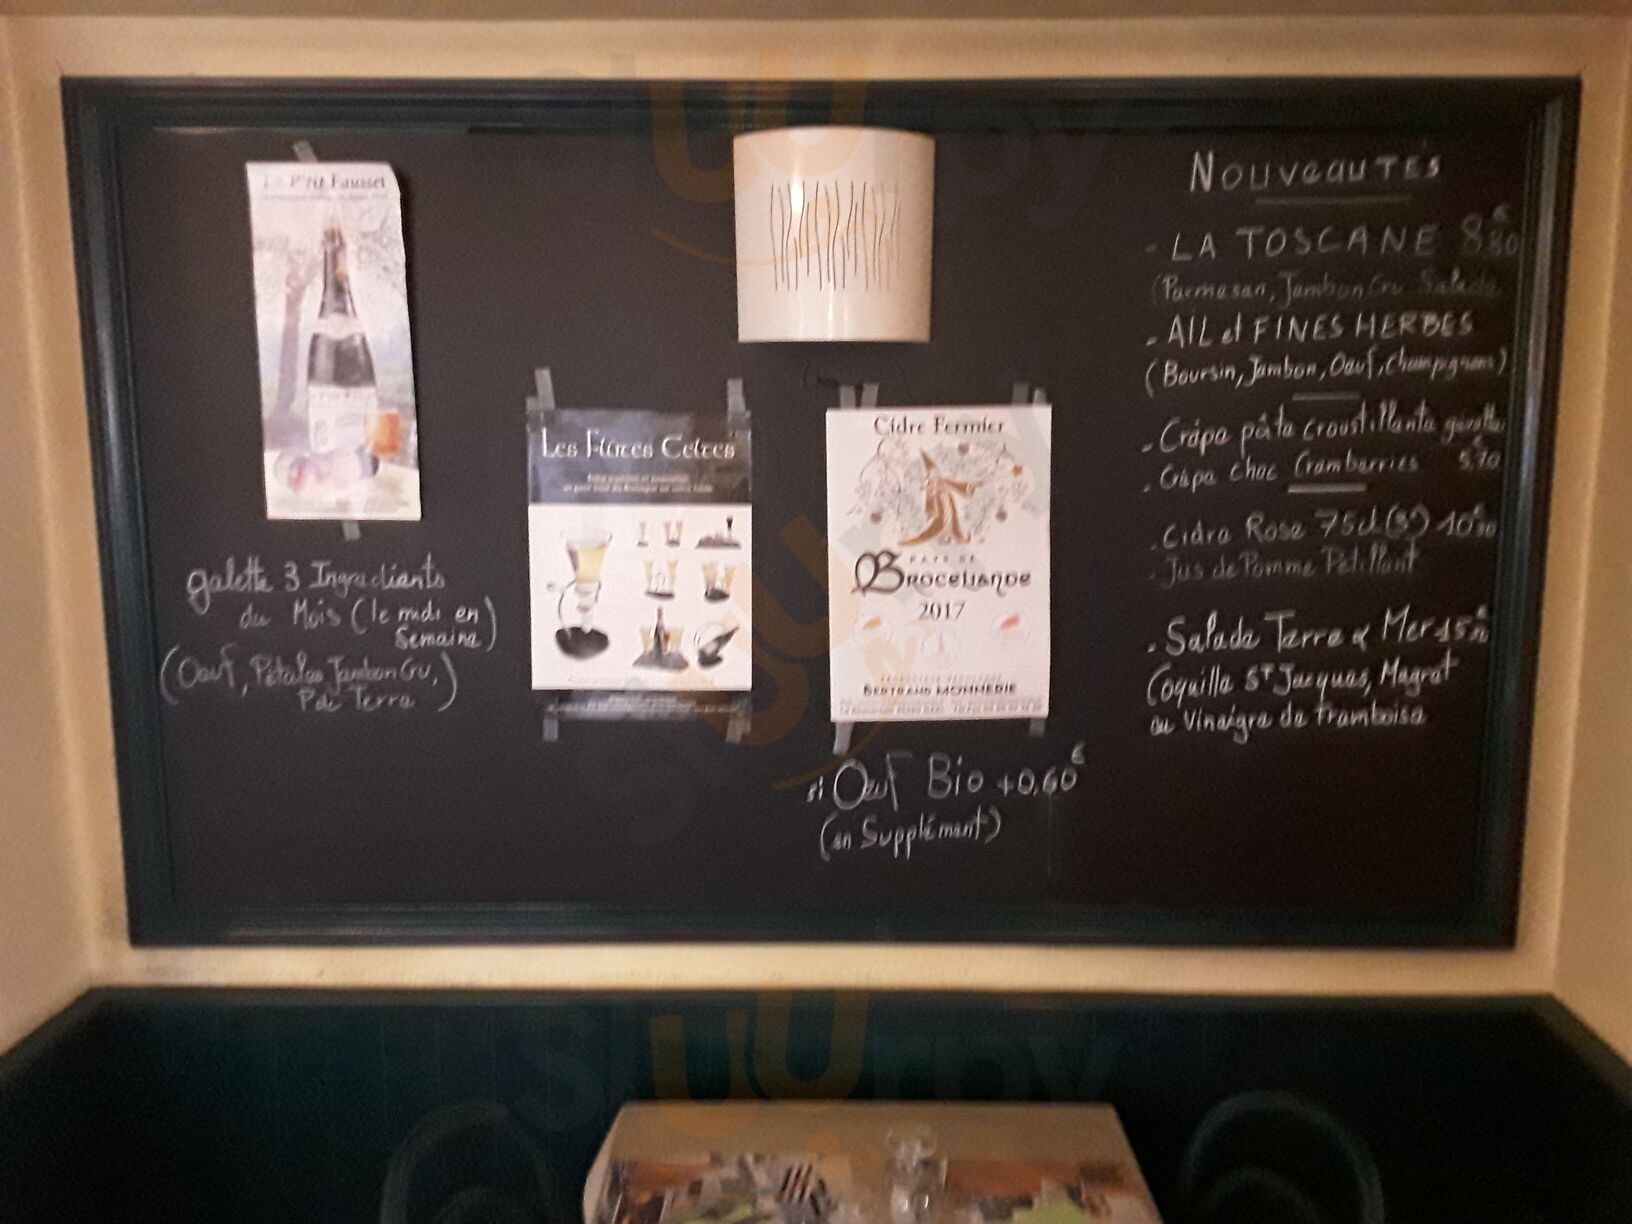 Le P'tit Fausset
galette 3 Ingrédients
du Mois (le midi en
Semaine)
(Oeuf, Pétales Jambon Cru,
P de Terre)
Les Flûtes Celtes
Cidre Fermier
PAYS DE
BROCELIANDE
2017
BERTRAND MONNERIE
si Oeuf Bio +0,60€
(en Supplément)
NOUVEAUTÉS
- LA TOSCANE 8€80
(Parmesan, Jambon Cru Salade
- AIL et FINES HERBES
(Boursin, Jambon, Oeuf, Champignons)
- Crêpe pâte croustillante
- Crêpe choc Cramberries 5€70
- Cidre Rose 75cl (3°) 10€30
- Jus de Pomme Pétillant
- Salade Terre & Mer 15€
(Coquille St Jacques, Magret
au Vinaigre de framboise